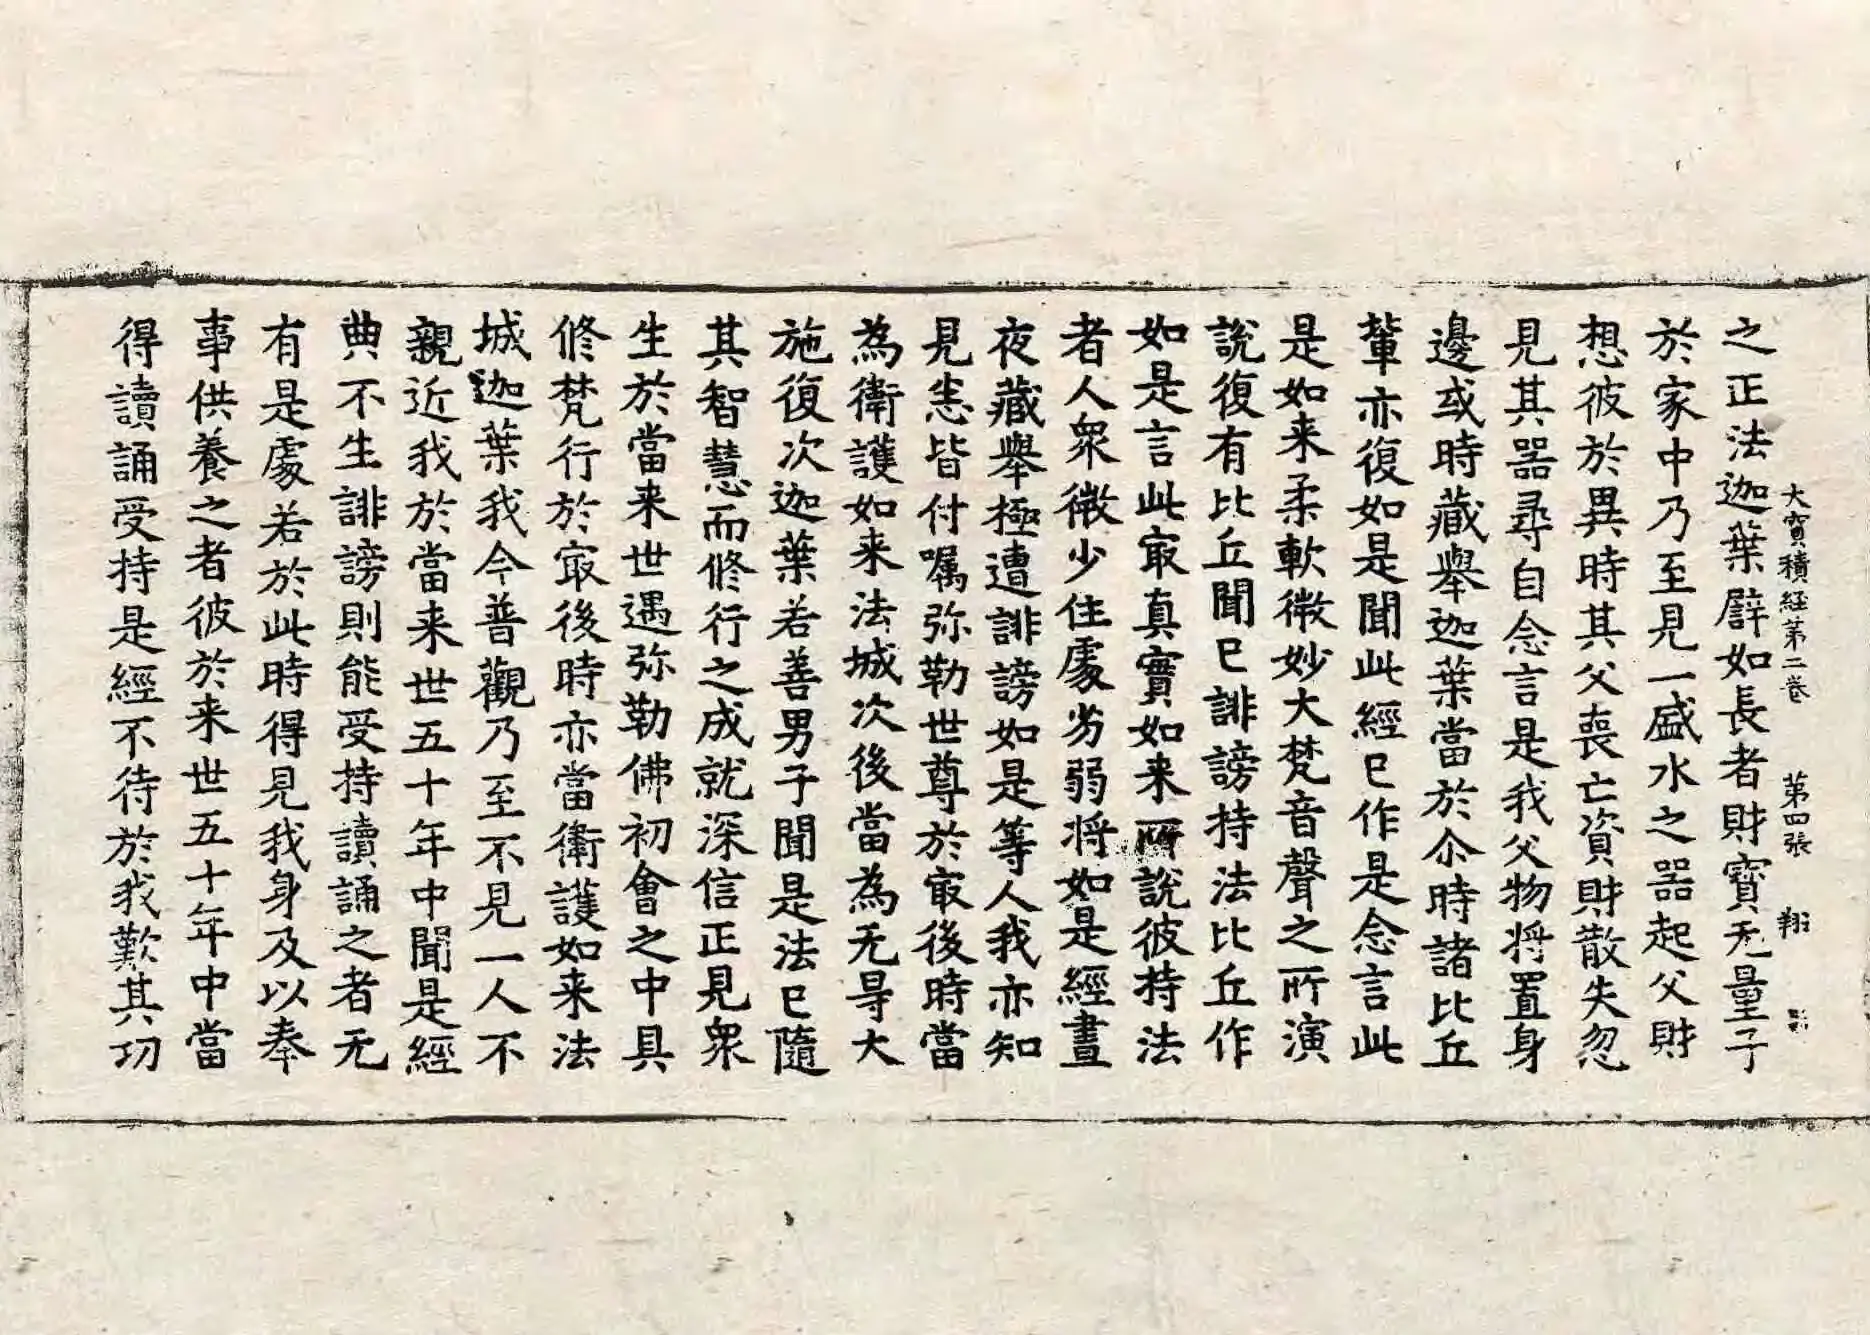 大寶積経苐二巻　苐四張　翔
之正法迦葉譬如長者財寶无量子
於家中乃至見一盛水之器起父財
想彼於異時其父喪亡資財散失忽
見其器尋自念言是我父物将置身
邊或時藏舉迦葉當於尒時諸比丘
輩亦復如是聞此經已作是念言此
是如来柔軟微妙大梵音聲之所演
說復有比丘聞已誹謗持法比丘作
如是言此㝡真實如来所說彼持法
者人衆微少住處劣弱将如是經晝
夜藏舉極遭誹謗如是等人我亦知
見悉皆付嘱弥勒世尊於㝡後時當
為衛護如来法城次後當為无㝵大
施復次迦葉若善男子聞是法已隨
其智慧而修行之成就深信正見衆
生於當来世遇弥勒佛初會之中具
修梵行於㝡後時亦當衛護如来法
城迦葉我今普觀乃至不見一人不
親近我於當来世五十年中聞是經
典不生誹謗則能受持讀誦之者无
有是處若於此時得見我身及以奉
事供養之者彼於来世五十年中當
得讀誦受持是經不待於我歎其功